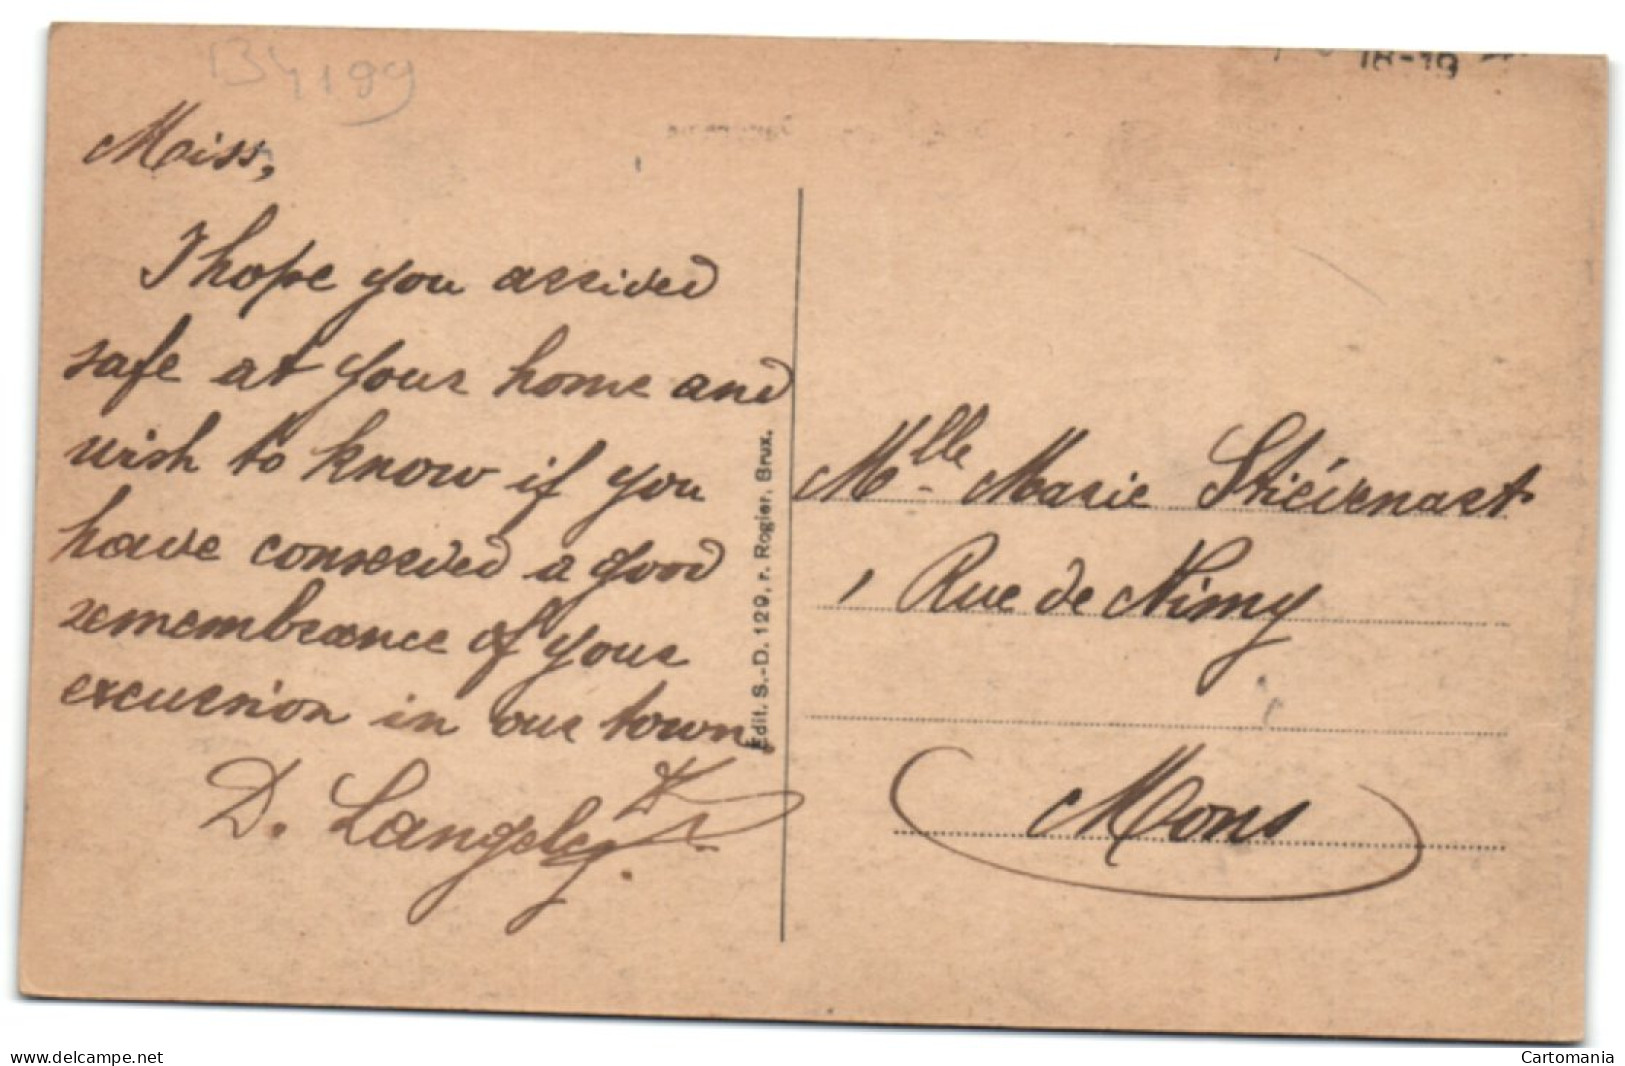 B4199
18-19
Miss,
I hope you arrived
safe at your home and
wish to know if you
have conserved a good
remembrance of your
excursion in our town.
D. Langely
Edit. S.-D. 129, r. Rogier, Brux.
Mlle Marie Stiévenart
1 Rue de Nimy
Mons
delcampe.net
Cartomania